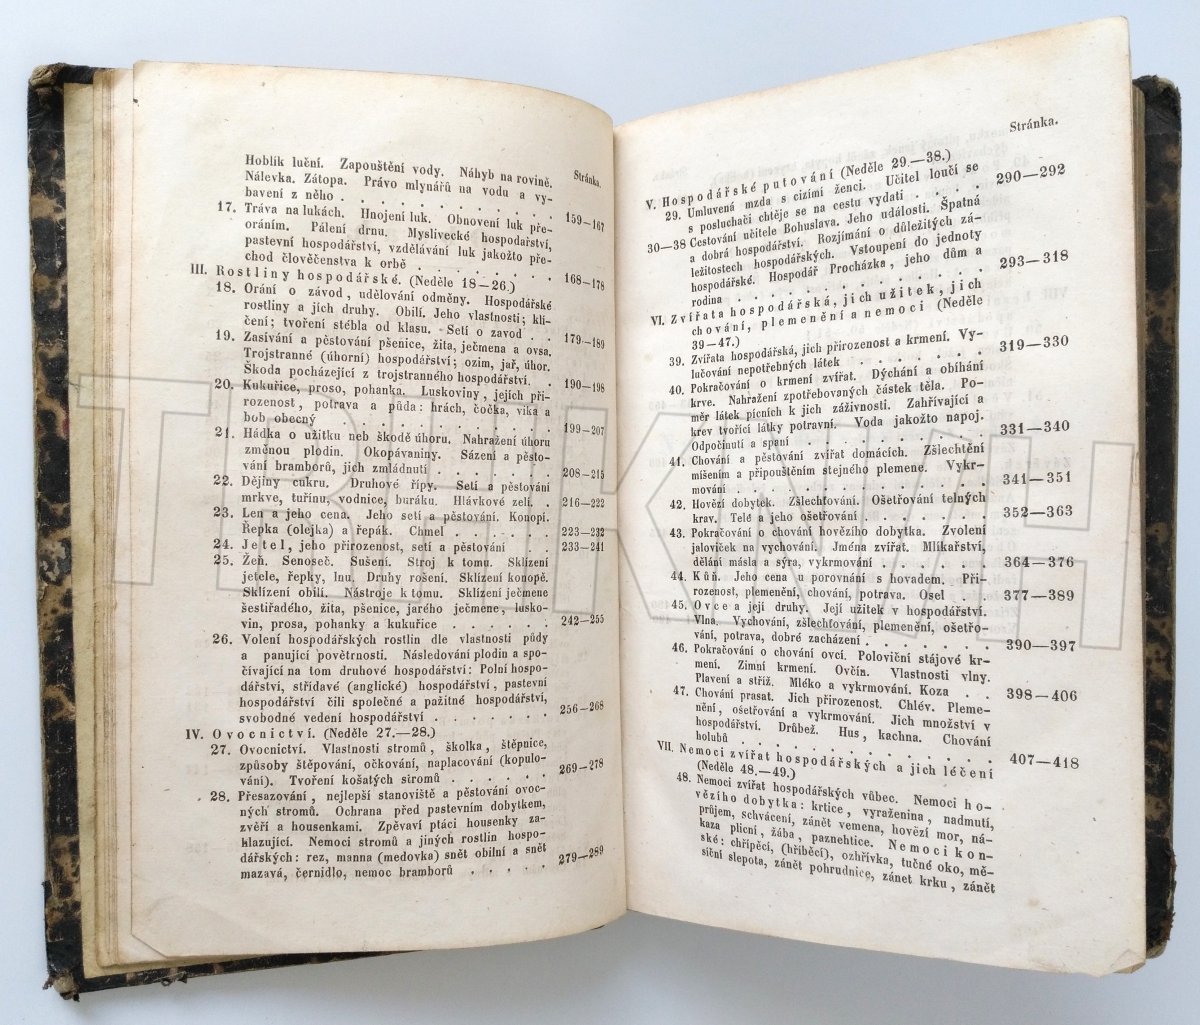 Stránka.
Hoblík luční. Zapouštění vody. Náhyb na rovině.
Nálevka. Zátopa. Právo mlynářů na vodu a vy-
bavení z něho . . . . . . . . . . . 159—167
17. Tráva na lukách. Hnojení luk. Obnovení luk pře-
oráním. Pálení drnu. Myslivecké hospodařství,
pastevní hospodářství, vzdělávání luk jakožto pře-
chod člověčenstva k orbě . . . . . . . 168—178
III. Rostliny hospodářské. (Neděle 18—26.)
18. Orání o závod, udělování odměny. Hospodářské
rostliny a jich druhy. Obilí. Jeho vlastnosti; klí-
čení; tvoření stébla od klasu. Setí o zavod . . 179—189
19. Zasívání a pěstování pšenice, žita, ječmena a ovsa.
Trojstranné (úhorní) hospodářství; ozim, jař, úhor.
Škoda pocházející z trojstranného hospodářství. . 190—198
20. Kukuřice, proso, pohanka. Luskoviny, jejich při-
rozenost, potrava a půda: hrách, čočka, vika a
bob obecný . . . . . . . . . . . 199—207
21. Hádka o užitku neb škodě úhoru. Nahražení úhoru
změnou plodin. Okopávaniny. Sázení a pěsto-
vání bramborů, jich zmládnutí . . . . . . 208—215
22. Dějiny cukru. Druhové řípy. Setí a pěstování
mrkve, tuřínu, vodnice, buráku. Hlávkové zelí. . 216—222
23. Len a jeho cena. Jeho setí a pěstování. Konopí.
Řepka (olejka) a řepák. Chmel . . . . . 223—232
24. Jetel, jeho přirozenost, setí a pěstování 233—241
25. Žeň. Senoseč. Sušení. Stroj k tomu. Sklízení
jetele, řepky, lnu. Druhy rošení. Sklízení konopě.
Sklízení obilí. Nástroje k tomu. Sklízení ječmene
šestiřadého, žita, pšenice, jarého ječmene, lusko-
vin, prosa, pohanky a kukuřice . . . . . . 242—255
26. Volení hospodářských rostlin dle vlastnosti půdy
a panující povětrnosti. Následování plodin a spo-
čívající na tom druhové hospodářství: Polní hospo-
dářství, střídavé (anglické) hospodářství, pastevní
hospodářství čili společné a pažitné hospodářství,
svobodné vedení hospodářství . . . . . . . 256—268
IV. Ovocnictví. (Neděle 27.—28.)
27. Ovocnictví. Vlastnosti stromů, školka, štěpnice,
způsoby štěpování, očkování, naplacování (kopulo-
vání). Tvoření košatých stromů . . . . . . 269—278
28. Přesazování, nejlepší stanoviště a pěstování ovoc-
ných stromů. Ochrana před pastevním dobytkem,
zvěří a housenkami. Zpěvaví ptáci housenky za-
hlazující. Nemoci stromů a jiných rostlin hospo-
dářských: rez, manna (medovka) snět obilní a snět
mazavá, černidlo, nemoc bramborů . . . . . 279—289
Stránka.
V. Hospodářské putování (Neděle 29.—38.)
29. Umluvená mzda s cizími ženci. Učitel loučí se
s posluchači chtěje se na cestu vydati . . . . 290—292
30—38 Cestování učitele Bohuslava. Jeho události. Špatná
a dobrá hospodářství. Rozjímání o důležitých zá-
ležitostech hospodářských. Vstoupení do jednoty
hospodářské. Hospodář Procházka, jeho dům a
rodina . . . . . . . . . . . . . 293—318
VI. Zvířata hospodářská, jich užitek, jich
chování, plemenění a nemoci (Neděle
39—47.)
39. Zvířata hospodářská, jich přirozenost a krmení. Vy-
lučování nepotřebných látek . . . . . . . 319—330
40. Pokračování o krmení zvířat. Dýchání a obíhání
krve. Nahražení zpotřebovaných částek těla. Po-
měr látek pícních k jich záživnosti. Zahřívající a
krev tvořící látky potravní. Voda jakožto napoj.
Odpočinutí a spaní . . . . . . . . . 331—340
41. Chování a pěstování zvířat domácích. Zšlechtění
míšením a připouštěním stejného plemene. Vykr-
mování . . . . . . . . . . . . . 341—351
42. Hovězí dobytek. Zšlechťování. Ošetřování telných
krav. Tele a jeho ošetřování . . . . . . . 352—363
43. Pokračování o chování hovězího dobytka. Zvolení
jaloviček na vychování. Jména zvířat. Mlíkařství,
dělání másla a sýra, vykrmování . . . . . . 364—376
44. Kůň. Jeho cena u porovnání s hovadem. Při-
rozenost, plemenění, chování, potrava. Osel . . . 377—389
45. Ovce a její druhy. Její užitek v hospodářství.
Vlna. Vychování, zšlechťování, plemenění, ošetřo-
vání, potrava, dobré zacházení . . . . . . . 390—397
46. Pokračování o chování ovcí. Poloviční stájové kr-
mení. Zimní krmení. Ovčín. Vlastnosti vlny.
Plavení a stříž. Mléko a vykrmování. Koza . . 398—406
47. Chování prasat. Jich přirozenost. Chlév. Pleme-
nění, ošetřování a vykrmování. Jich množství v
hospodářství. Drůbež. Hus, kachna. Chování
holubů . . . . . . . . . . . . . 407—418
VII. Nemoci zvířat hospodářských a jich léčení
(Neděle 48.—49.)
48. Nemoci zvířat hospodářských vůbec. Nemoci ho-
vězího dobytka: krtice, vyraženina, nadmutí,
průjem, schvácení, zánět vemena, hovězí mor, ná-
kaza plicní, žába, paznehtice. Nemoci kon-
ské: chřípěcí, (hříběcí), ozhřívka, tučné oko, mě-
siční slepota, zánět pohrudnice, zánet krku, zánět
TRHKNIH